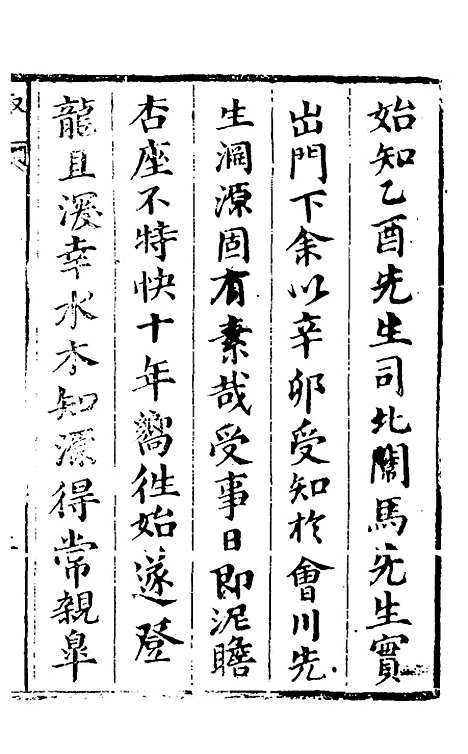 始知乙酉先生司北闈馬先生實
出門下余以辛卯受知於會川先
生淵源固有素哉受事日即泥瞻
杏座不特快十年嚮徃始遂登
龍且深幸水木知源得常親臯